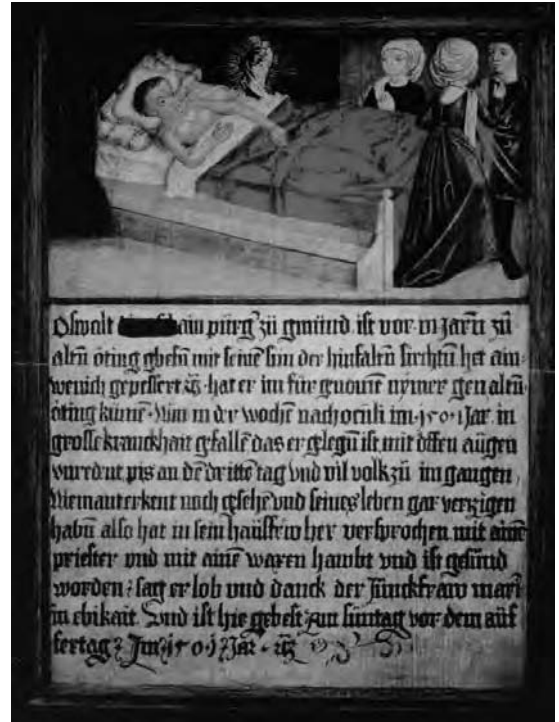 Oswalt ain pürg zü gmünd ist vor iij Jarn zü
altn öting gwesn mit seinē sün der hinfaltn sirchtn het ain
wenich gepessert · hat er im für gnomē nymer gen altn
öting kümē · Nün in der wochē nach ocüli im · 1501 Jar · in
grosse kranckhait gefallē das er gelegn ist mit offen aügen
vnrednt pis an dē drittē tag vnd vil volk zü im gangen
Niemant erkent noch gesehē vnd seines leben gar verzigen
habn also hat in sein haüsfrw her versprochen mit ainē
priester vnd mit ainē waxen haubt vnd ist gesünd
worden · sag er lob vnd danck der Jünckfraw mari
in ebikait · Vnd ist hie gebest am süntag vor dem auf
fertag · Im · 1501 · Jar ·